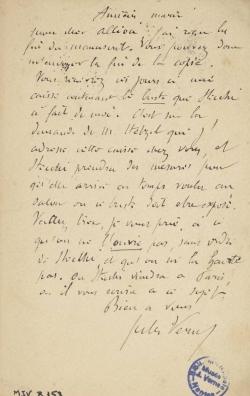 Amiens mardi
mon cher ami j'ai reçu la
fin du manuscrit. Vous pouvez donc
la fin de la copie.
Vous recevrez ces jours-ci une
caisse contenant le buste que
a fait de moi. C'est sur la
demande de M. Hetzel que j'
adresse cette caisse chez vous, et
prendra des mesures pour
qu'elle arrive en temps voulu au
salon où le buste doit être exposé.
Veillez bien, je vous prie, à ce
qu'on ne l'ouvre pas, sans ordre
de et qu'on ne la
pas. Ou viendra à Paris,
ou il vous écrira à ce sujet.
Bien à vous
Jules Verne
MJV B 153
Musée
J. Verne
Nantes